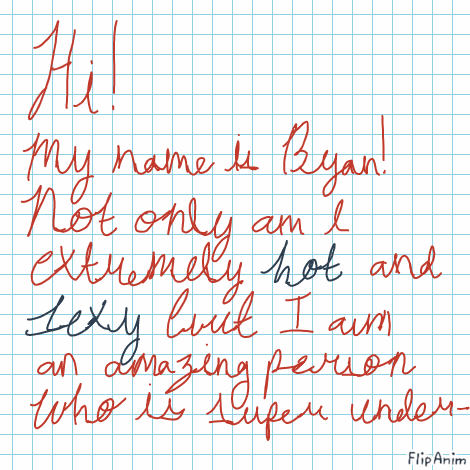 Hi!
My name is Byan!
Not only am I
extremely hot and
sexy but I am
an amazing person
who is super under-
FlipAnim